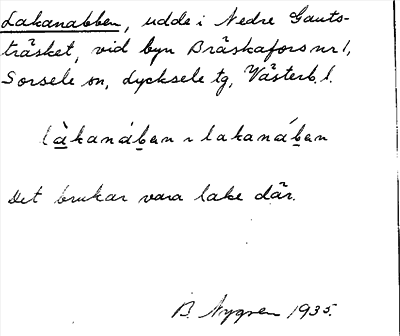 Lakanabben, udde i Nedre Gauts-
träsket, vid byn Bräskafors nr 1,
Sorsele sn, Lycksele tg, Västerb. l.
làkanáben ~ lakanában
Det brukar vara lake där.
B. Nygren 1935.